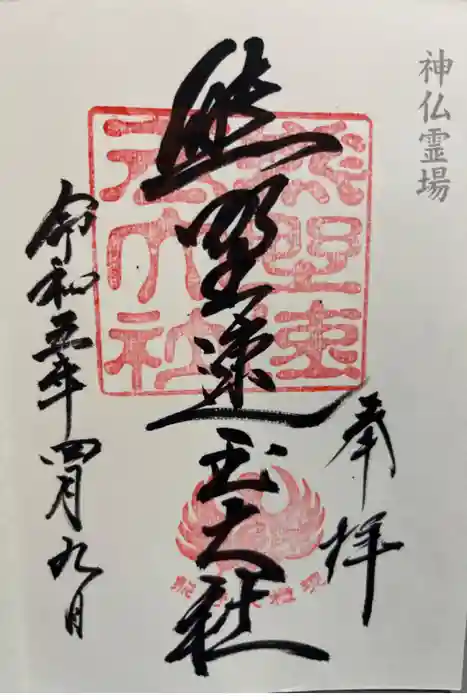 神仏霊場
奉拝
熊野速玉大社
令和五年四月九日
熊野速玉大社